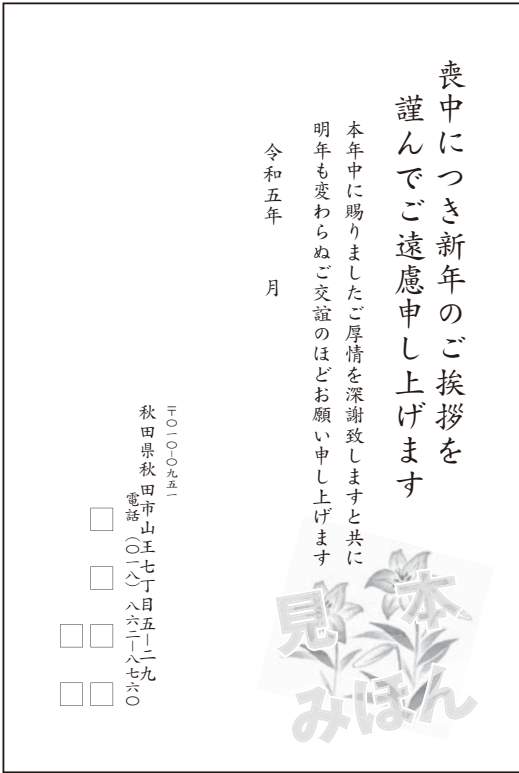 喪中につき新年のご挨拶を
謹んでご遠慮申し上げます
本年中に賜りましたご厚情を深謝致しますと共に
明年も変わらぬご交誼のほどお願い申し上げます
令和五年　　月
〒〇一〇−〇九五一
秋田県秋田市山王七丁目五−二九
電話（〇一八）八六二−八七六〇
□　□　□　□
□　□
見本
みほん